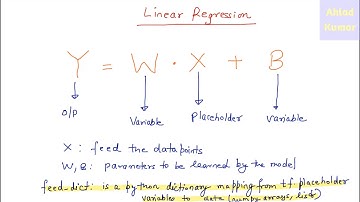 Linear Regression
Ahlad
Kumar
Y = W . X + B
O/P
Variable
Placeholder
Variable
X : feed the data points
W, B : parameters to be learned by the model
feed_dict : is a python dictionary mapping from tf. placeholder
variables to data (numpy arrays, lists)